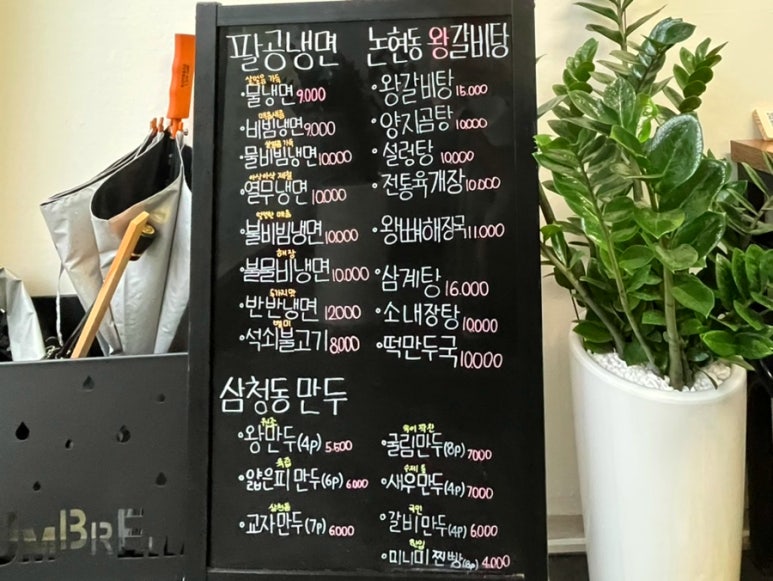 팔공냉면
살얼음 가득
·물냉면 9.000
매콤새콤
·비빔냉면 9.000
살얼음 가득
·물비빔냉면 10.000
아삭아삭 제철
·열무냉면 10.000
얼얼한 매콤
·불비빔냉면 10.000
해장
·불물비냉면 10.000
6가지맛
·반반냉면 12.000
별미
·석쇠불고기 8,000
논현동 왕갈비탕
·왕갈비탕 15.000
·양지곰탕 10.000
·설렁탕 10.000
·전통육개장 10.000
·왕뼈해장국 11.000
·삼계탕 16.000
·소내장탕 10.000
·떡만두국 10.000
삼청동 만두
원조
·왕만두(4p) 5.500
육즙
·얇은피 만두(6p) 6.000
삼천동
·교자만두(7p) 6.000
·굴림만두(8p) 7000
수제 통
·새우만두(4p) 7000
국민
·갈비만두(4p) 6.000
·미니미 찐빵(8p) 4.000
UMBRELLA